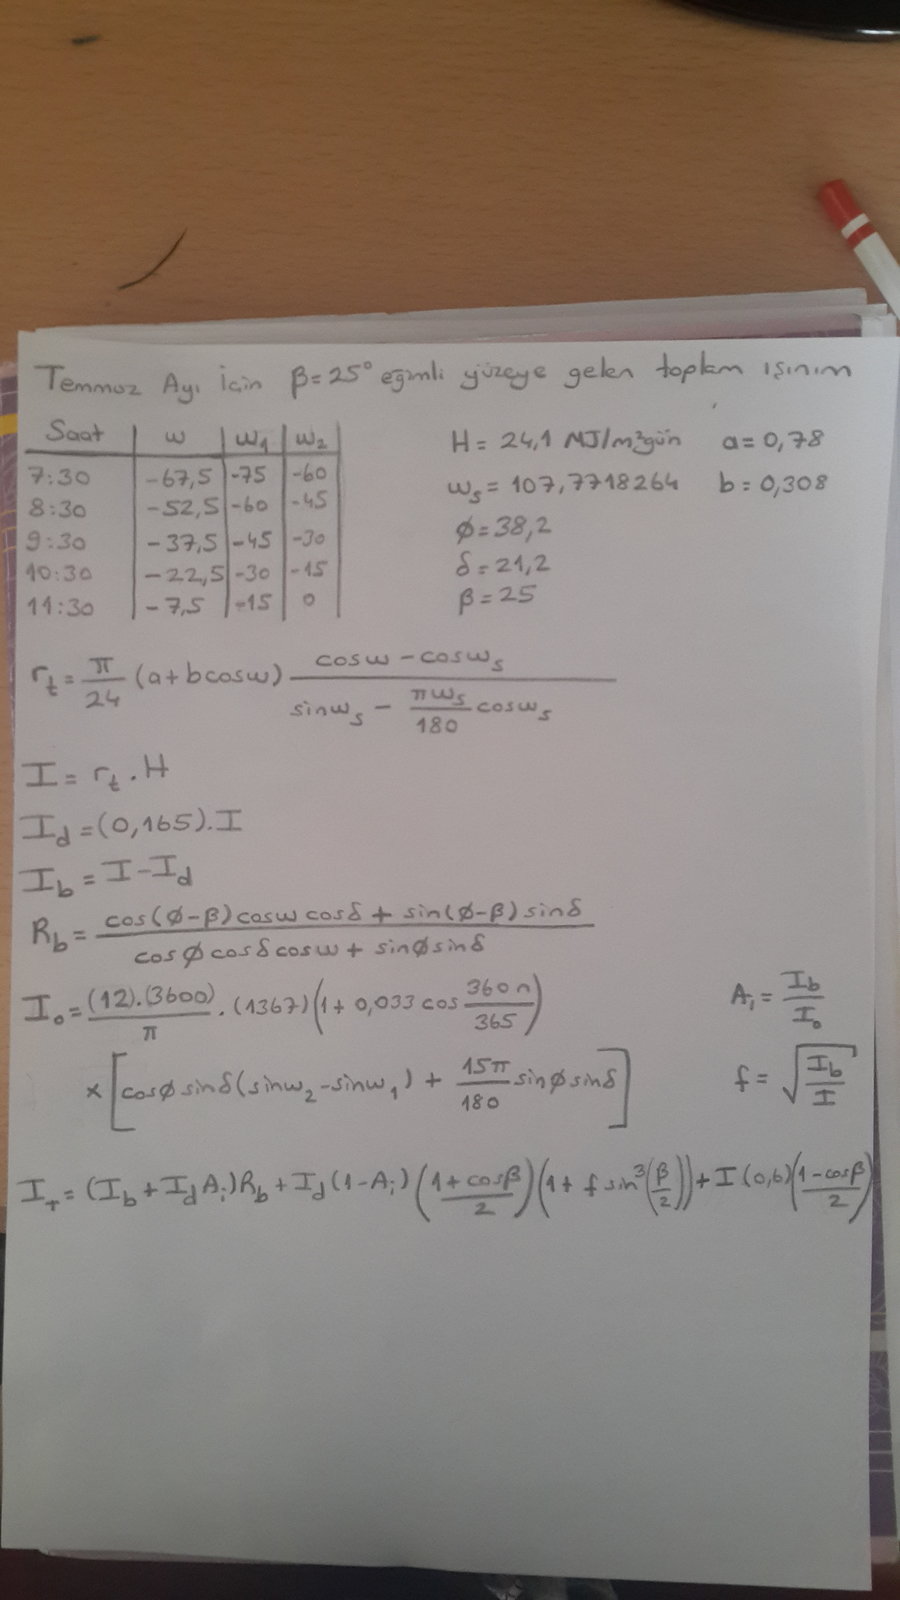 Temmuz Ayı İçin β=25° eğimli yüzeye gelen toplam ışınım
Saat | w | w₁ | w₂
7:30 | -67,5 | -75 | -60
8:30 | -52,5 | -60 | -45
9:30 | -37,5 | -45 | -30
10:30 | -22,5 | -30 | -15
11:30 | -7,5 | -15 | 0
H = 24,1 MJ/m²gün a=0,78
w_s = 107,7718264 b=0,308
ϕ=38,2
δ=21,2
β=25
r_t = π/24 (a+bcosw) (cosw - cosw_s)/(sinw_s - (πw_s/180) cosw_s)
I = r_t . H
I_d = (0,165).I
I_b = I - I_d
R_b = (cos(ϕ-β)cosw cosδ + sin(ϕ-β)sinδ)/(cosϕ cosδ cosw + sinϕ sinδ)
I_o = (12).(3600)/π . (1367)(1 + 0,033 cos 360n/365)
A_i = I_b/I_o
x [cosϕ sinδ (sinw₂ - sinw₁) + 15π/180 sinϕ sinδ]
f = √(I_b/I)
I_T = (I_b + I_d A_i)R_b + I_d (1-A_i) ((1+cosβ)/2) (1 + f sin³(β/2)) + I (0,6) ((1-cosβ)/2)